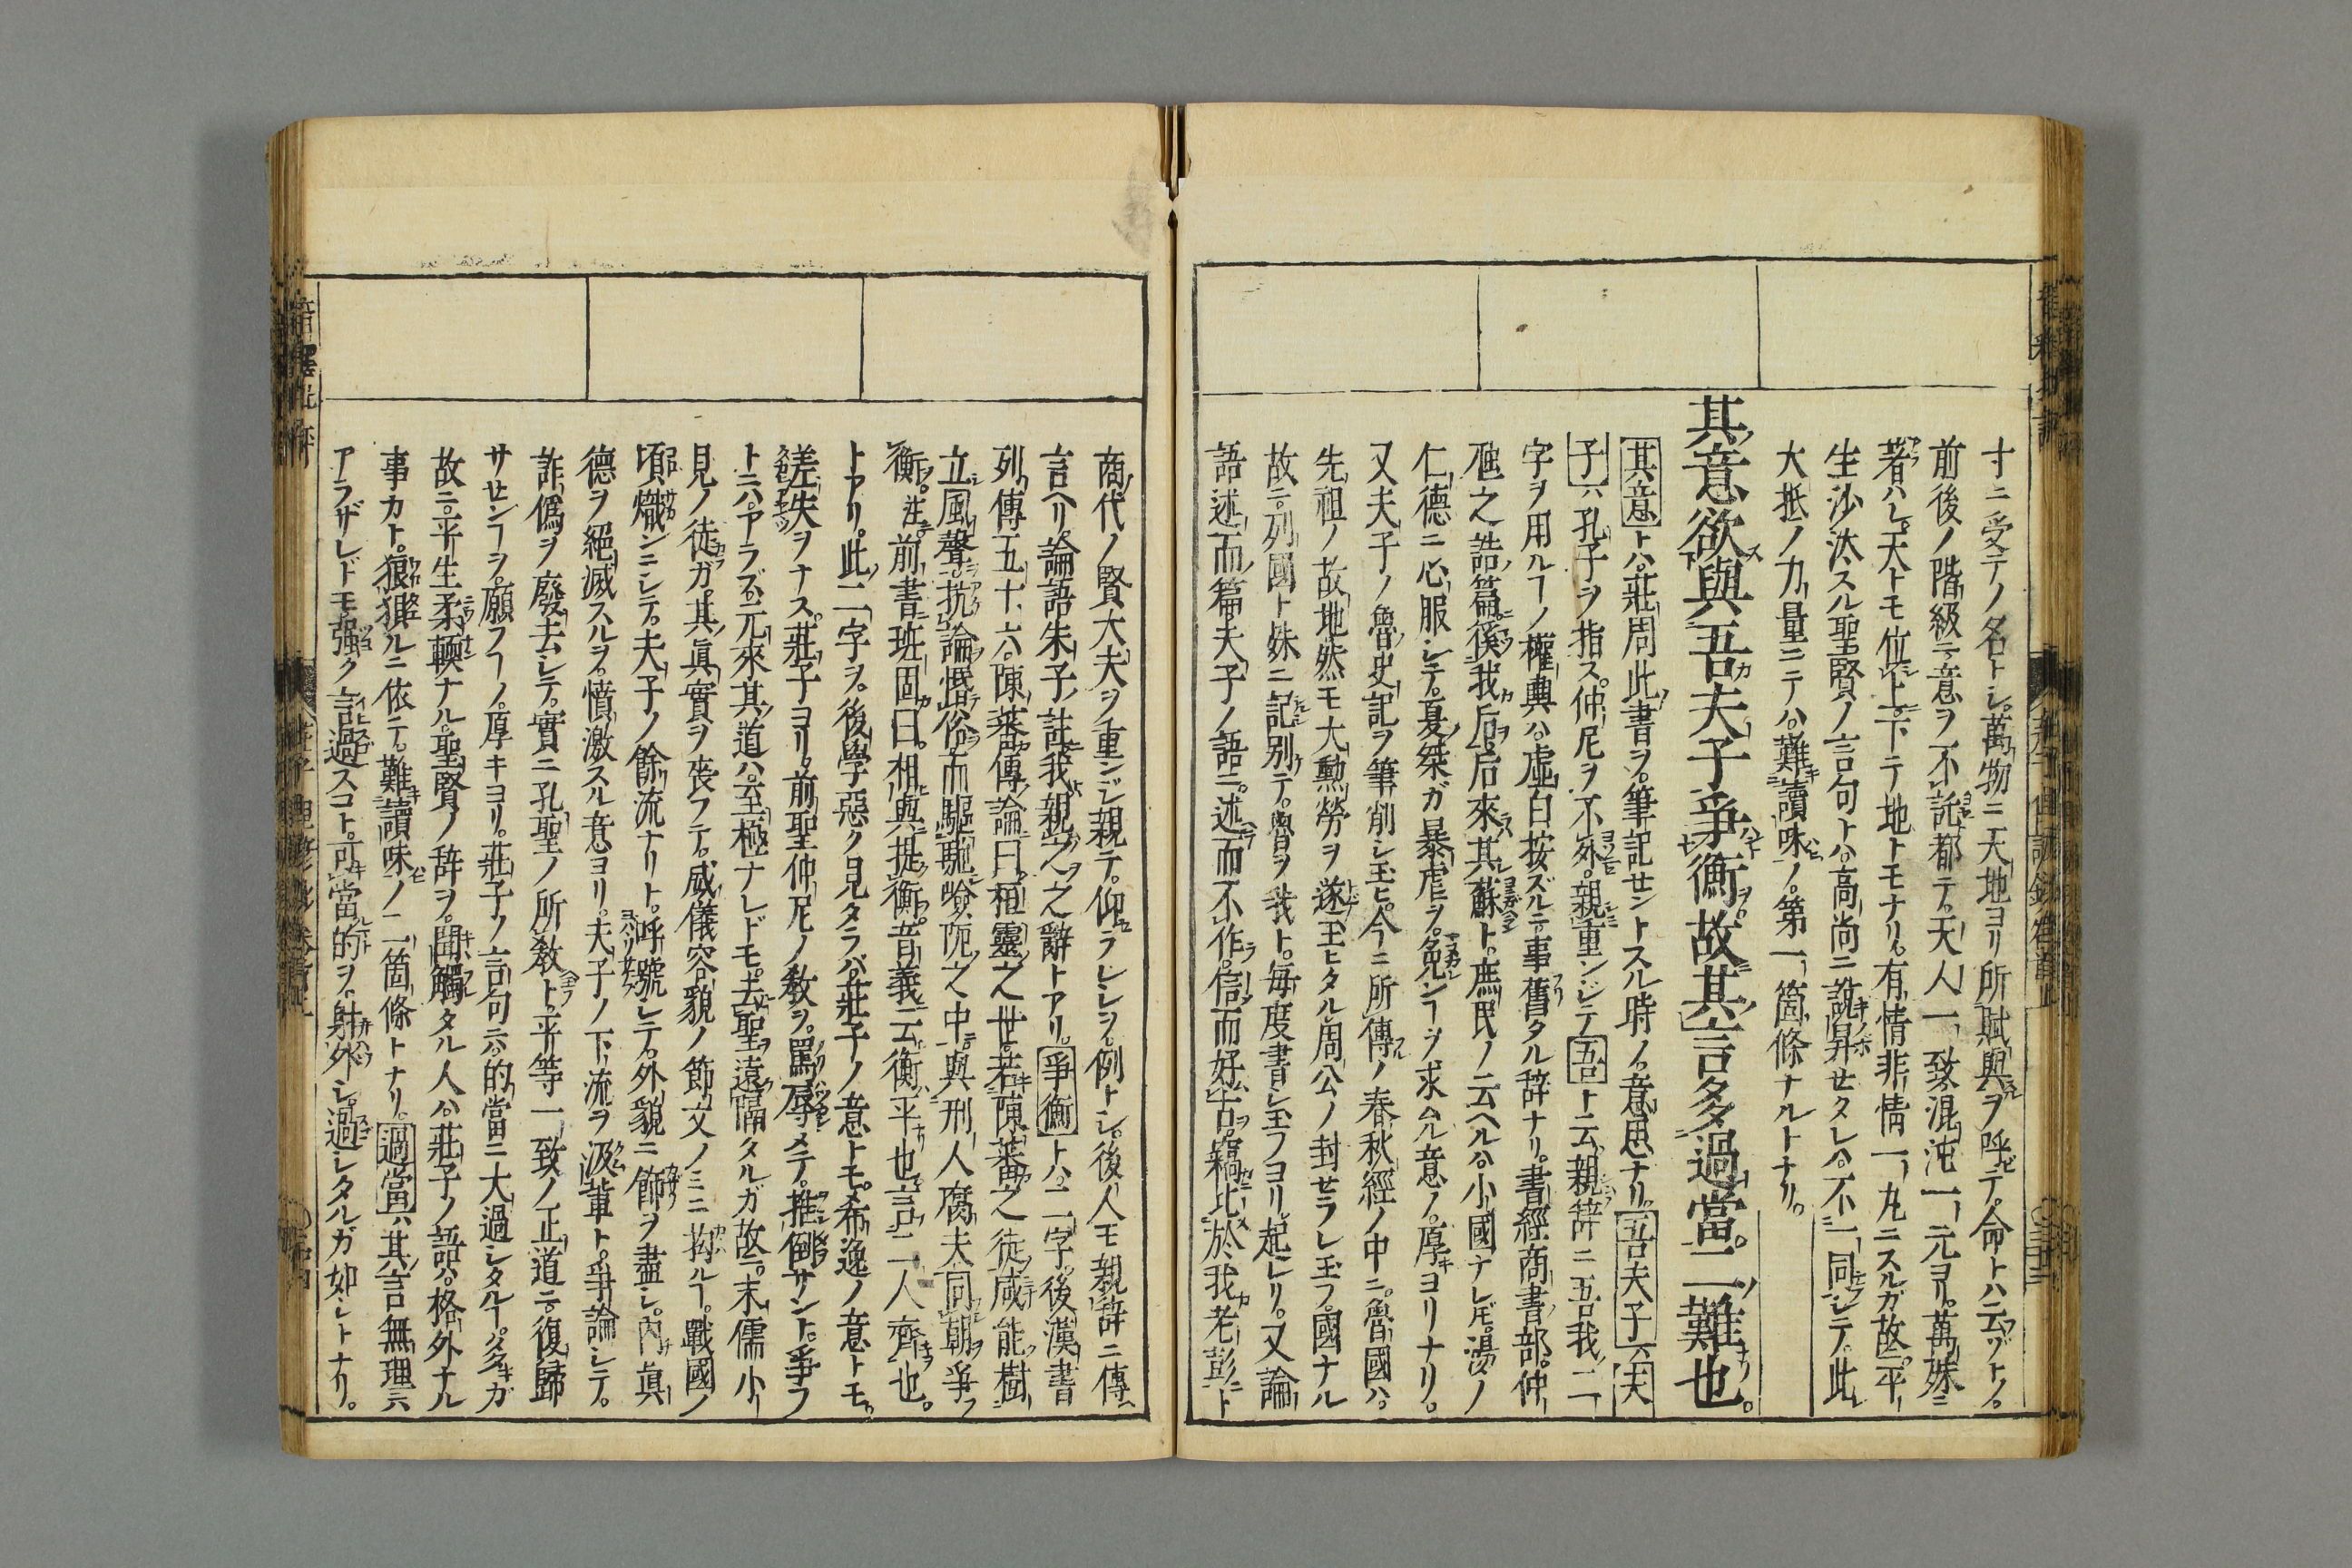 寸ニ受テノ名トシ。萬物ニ天地ヨリ所賦與ヲ呼テ。命トハ云ヅトノ。
前後ノ階級ニ意ヲ不託都テ。天人一致混沌一元ヨリ。萬殊ニ
著ハレ。天トモ位上下ニテ地トモナリ。有情非情一丸ニスルガ故ニ。平
生沙汰スル聖賢ノ言句トハ。高尚ニ説昇セタレハ。不一同シテ。此
大抵ノ力量ニテハ。難讀味ノ。第一箇條ナルトナリ。
其意欲與吾夫子爭衡故其言多過當。二難也。
其意トハ。莊周此書ヲ。筆記セントスル時ノ。意思ナリ。吾夫子ハ夫
子ハ孔子ヲ指ス。仲尼ヲ不外。親重ンジテ吾ト云。親辞ニ吾我ノ二
字ヲ用ルヿノ權輿ハ。虚白按ズルニ事舊タル辞ナリ。書經商書ノ部。仲
虺之誥篇。徯我后后來其蘇ト。庶民ノ云ヘルハ。小國ナレ𪜈。湯ノ
仁德ニ心服シテ。夏桀ガ暴虐ヲ。免ンヿヲ求ムル意ノ。厚ヨリナリ。
又夫子ノ魯史記ヲ筆削シ玉ヒ。今ニ所傳ノ春秋經ノ中ニ。魯國ハ。
先祖ノ故地然モ大勳勞ヲ遂玉ヒタル周公ノ封セラレ玉フ。國ナル
故ニ。列國ト殊ニ記別テ。魯ヲ我ト。毎度書シ玉フヨリ。起レリ。又論
語述而篇夫子ノ語ニ。述而不作。信而好古。竊比於我老彭ト
商代ノ賢大夫ヲ重ンジ親テ。仰ラレシヲ。例トシ。後人モ親辞ニ傳
言ヘリ。論語朱子註我親之之辭トアリ。爭衡トハ。二字。後漢書
列傳五十六。陳蕃傳論曰。桓靈之世。若陳蕃之徒咸能樹
立風聲抗論惛俗而驅馳嶮阨之中與刑人腐夫同朝爭
衡。註。前書班固曰。相與提衡。音義云衡平也言二人齊也。
トアリ。此二字ヲ。後學惡ク見タラバ。莊子ノ意トモ。希逸ノ意トモ。
差失ヲナス。莊子ヨリ。前聖仲尼ノ教ヲ。罵辱メテ。推倒サント。爭フ
トニハ。アラズ。元來其道ハ。至極ナレドモ。去聖遠隔タルガ故ニ。末儒小
見ノ徒ガ。其眞實ヲ喪フテ。威儀容貌ノ節文ノミニ拘ルヿ。戰國ノ
頃熾ンニシテ。夫子ノ餘流ナリト。呼號シテ。外貌ニ飾ヲ盡シ。内眞
德ヲ絕滅スルヲ。憤激スル意ヨリ。夫子ノ下流ヲ汲輩ト。爭論シテ。
詐僞ヲ廢去シテ。實ニ孔聖ノ所教ト。平等一致ノ正道ニ。復歸
サセンヿヲ。願フヿノ。厚キヨリ。莊子ノ言句ニハ。的當ニ大過シタルヿ。多ガ
故ニ。平生柔輭ナル。聖賢ノ辞ヲ。聞觸タル人ハ。莊子ノ語ハ。格外ナル
事カト。狼狽ルニ依テ。難讀味ノ二箇條トナリ。過當ハ其言無理ニハ
アラザレドモ。强ク言過スコト。可當的ヲ。射外シ。過シタルガ如シトナリ。